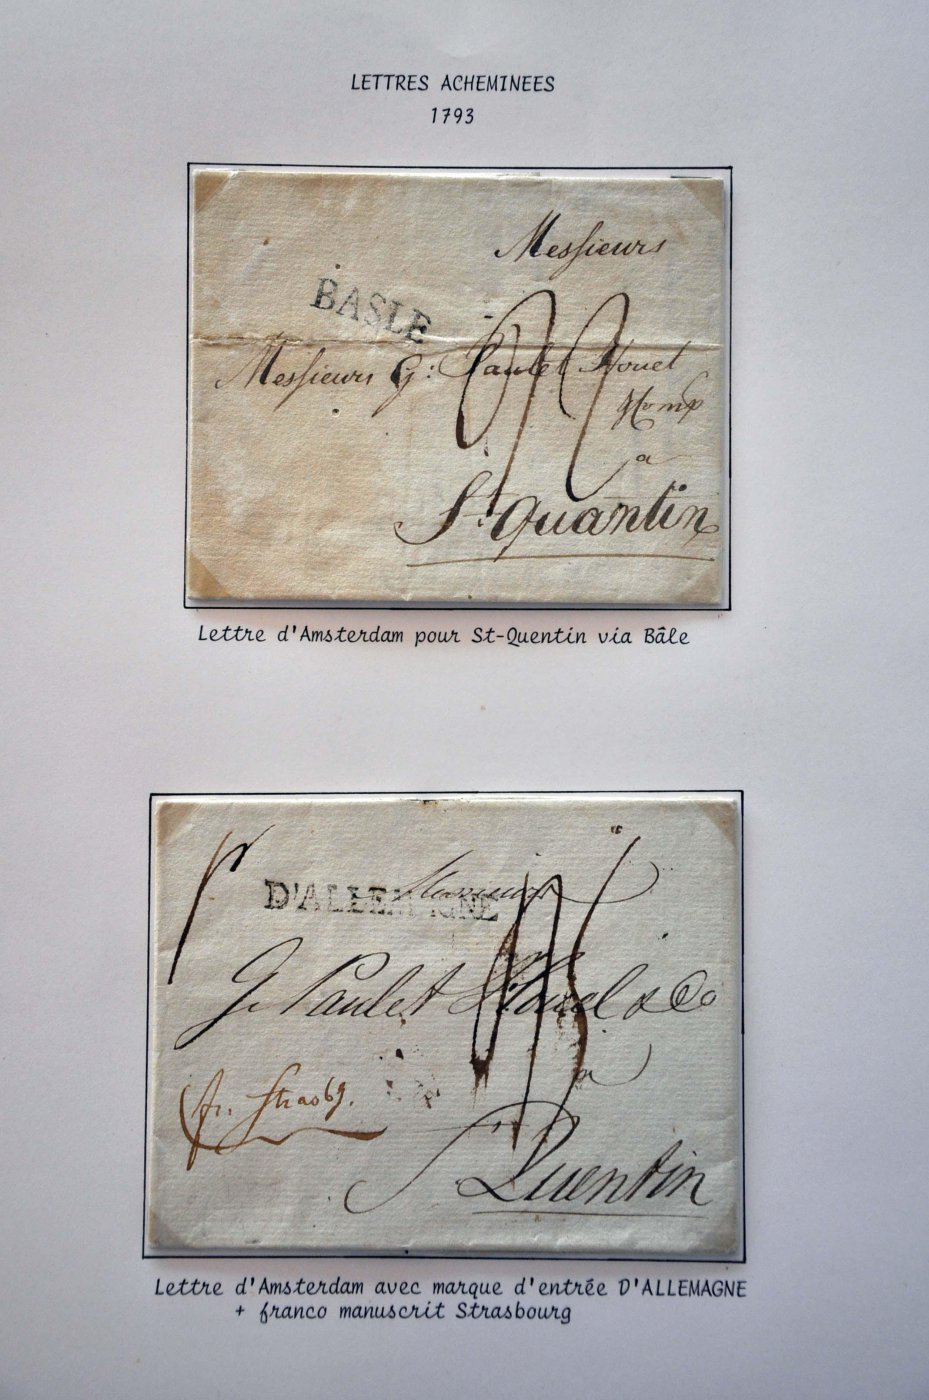 LETTRES ACHEMINEES
1793
Messieurs
BASLE
Messieurs G: Paulet Houel
a
St. Quantin
Lettre d'Amsterdam pour St-Quentin via Bâle
D'ALLEMAGNE
Messieurs
G. Paulet Houel & Co
a
St. Quentin
fr. Strasbg.
Lettre d'Amsterdam avec marque d'entrée D'ALLEMAGNE
+ franco manuscrit Strasbourg